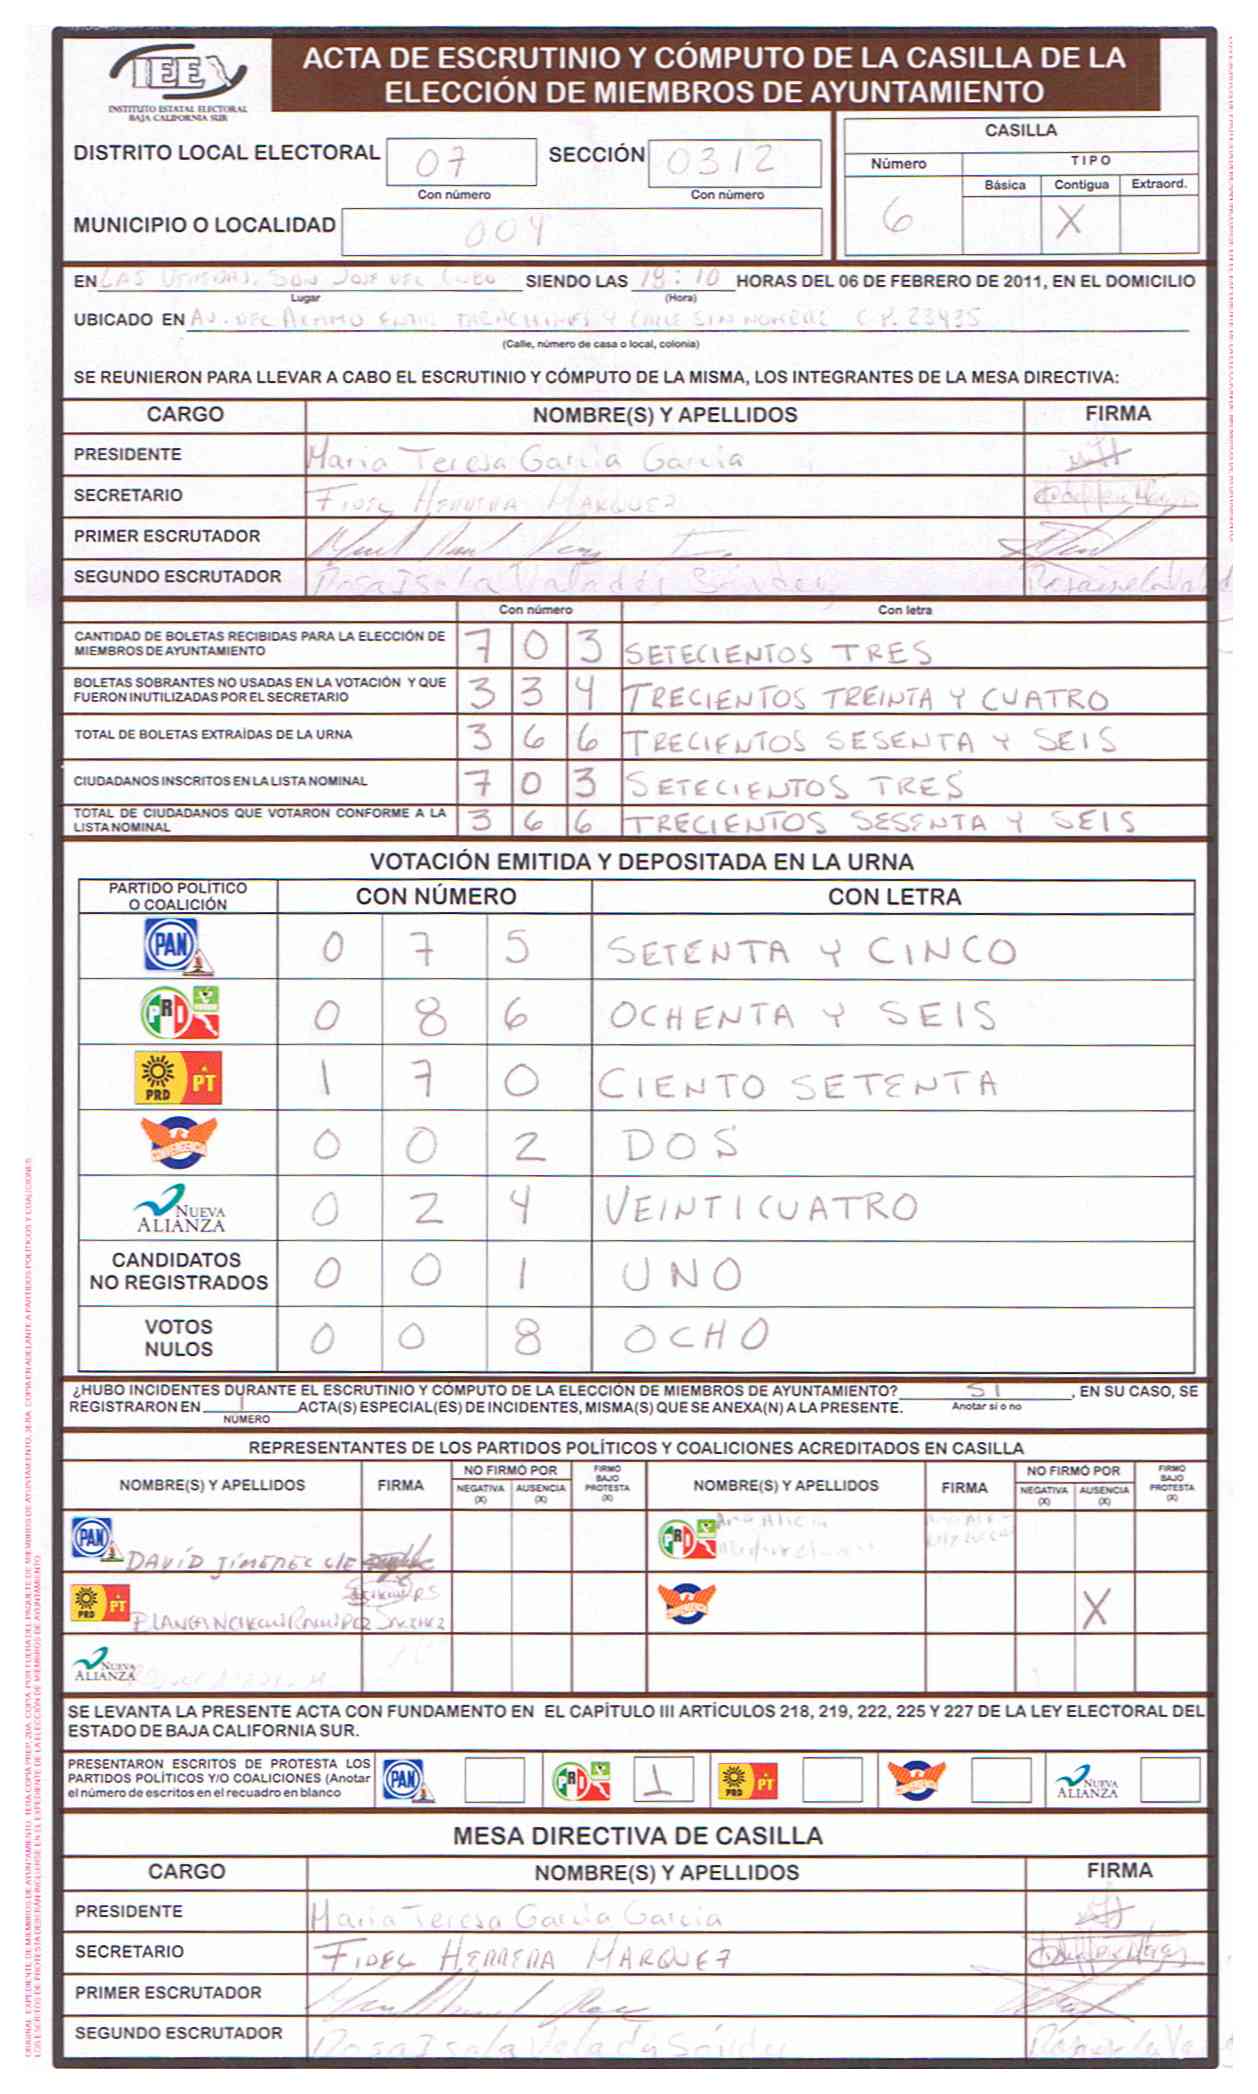 IEE
INSTITUTO ESTATAL ELECTORAL
BAJA CALIFORNIA SUR
ACTA DE ESCRUTINIO Y CÓMPUTO DE LA CASILLA DE LA
ELECCIÓN DE MIEMBROS DE AYUNTAMIENTO
DISTRITO LOCAL ELECTORAL 07 SECCIÓN 0312
Con número Con número
MUNICIPIO O LOCALIDAD 004
CASILLA
Número TIPO
Básica Contigua Extraord.
6 X
EN LAS VEREDAS, SAN JOSE DEL CABO SIENDO LAS 19:10 HORAS DEL 06 DE FEBRERO DE 2011, EN EL DOMICILIO
Lugar (Hora)
UBICADO EN AV. DEL ALAMO ENTRE Y CALLE SIN NOMBRE C.P. 23435
(Calle, número de casa o local, colonia)
SE REUNIERON PARA LLEVAR A CABO EL ESCRUTINIO Y CÓMPUTO DE LA MISMA, LOS INTEGRANTES DE LA MESA DIRECTIVA:
CARGO NOMBRE(S) Y APELLIDOS FIRMA
PRESIDENTE Maria Teresa Garcia Garcia
SECRETARIO FIDEL HERRERA MARQUEZ
PRIMER ESCRUTADOR
SEGUNDO ESCRUTADOR Rosa Isela Valadéz Sández
Con número Con letra
CANTIDAD DE BOLETAS RECIBIDAS PARA LA ELECCIÓN DE
MIEMBROS DE AYUNTAMIENTO 7 0 3 SETECIENTOS TRES
BOLETAS SOBRANTES NO USADAS EN LA VOTACIÓN Y QUE
FUERON INUTILIZADAS POR EL SECRETARIO 3 3 4 TRECIENTOS TREINTA Y CUATRO
TOTAL DE BOLETAS EXTRAÍDAS DE LA URNA 3 6 6 TRECIENTOS SESENTA Y SEIS
CIUDADANOS INSCRITOS EN LA LISTA NOMINAL 7 0 3 SETECIENTOS TRES
TOTAL DE CIUDADANOS QUE VOTARON CONFORME A LA
LISTA NOMINAL 3 6 6 TRECIENTOS SESENTA Y SEIS
VOTACIÓN EMITIDA Y DEPOSITADA EN LA URNA
PARTIDO POLÍTICO
O COALICIÓN CON NÚMERO CON LETRA
PAN 0 7 5 SETENTA Y CINCO
PRI 0 8 6 OCHENTA Y SEIS
PRD PT 1 7 0 CIENTO SETENTA
CONVERGENCIA 0 0 2 DOS
NUEVA ALIANZA 0 2 4 VEINTICUATRO
CANDIDATOS
NO REGISTRADOS 0 0 1 UNO
VOTOS
NULOS 0 0 8 OCHO
¿HUBO INCIDENTES DURANTE EL ESCRUTINIO Y CÓMPUTO DE LA ELECCIÓN DE MIEMBROS DE AYUNTAMIENTO? SI, EN SU CASO, SE
REGISTRARON EN 1 ACTA(S) ESPECIAL(ES) DE INCIDENTES, MISMA(S) QUE SE ANEXA(N) A LA PRESENTE. Anotar sí o no
NÚMERO
REPRESENTANTES DE LOS PARTIDOS POLÍTICOS Y COALICIONES ACREDITADOS EN CASILLA
NOMBRE(S) Y APELLIDOS FIRMA NO FIRMÓ POR NEGATIVA (X) AUSENCIA (X) FIRMÓ BAJO PROTESTA (X) NOMBRE(S) Y APELLIDOS FIRMA NO FIRMÓ POR NEGATIVA (X) AUSENCIA (X) FIRMÓ BAJO PROTESTA (X)
PAN DAVID JIMENEZ PRI Ana Alicia
PRD PT RAMIREZ SANCHEZ CONVERGENCIA X
NUEVA ALIANZA
SE LEVANTA LA PRESENTE ACTA CON FUNDAMENTO EN EL CAPÍTULO III ARTÍCULOS 218, 219, 222, 225 Y 227 DE LA LEY ELECTORAL DEL
ESTADO DE BAJA CALIFORNIA SUR.
PRESENTARON ESCRITOS DE PROTESTA LOS
PARTIDOS POLÍTICOS Y/O COALICIONES (Anotar
el número de escritos en el recuadro en blanco
PAN PRI 1 PRD PT CONVERGENCIA NUEVA ALIANZA
MESA DIRECTIVA DE CASILLA
CARGO NOMBRE(S) Y APELLIDOS FIRMA
PRESIDENTE Maria Teresa Garcia Garcia
SECRETARIO FIDEL HERRERA MARQUEZ
PRIMER ESCRUTADOR
SEGUNDO ESCRUTADOR Rosa Isela Valadéz Sández